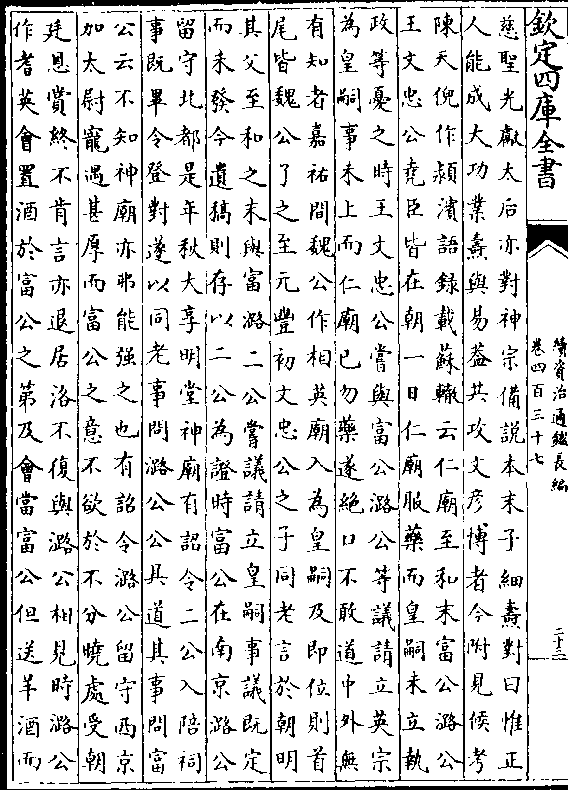 欽定四庫全書
續資治通鑑長編
卷四百三十七
二十三
慈聖光獻太后亦對神宗備說本末子細燾對曰惟正
人能成大功業燾與易葢共攻文彦博者今附見候考
陳天倪作潁濱語録載蘇轍云仁廟至和末富公潞公
王文忠公堯臣皆在朝一日仁廟服藥而皇嗣未立執
政等憂之時王文忠公嘗與富公潞公等議請立英宗
為皇嗣事未上而仁廟已勿藥遂絶口不敢道中外無
有知者嘉祐間魏公作相英廟入為皇嗣及即位則首
尾皆魏公了之至元豐初文忠公之子同老言於朝明
其父至和之末與富潞二公嘗議請立皇嗣事議既定
而未發今遺稿則存以二公為證時富公在南京潞公
留守北都是年秋大享明堂神廟有詔令二公入陪祠
事既畢令登對遂以同老事問潞公公具道其事問富
公云不知神廟亦弗能强之也有詔令潞公留守西京
加太尉寵遇甚厚而富公之意不欲於不分曉處受朝
廷恩賞終不肯言亦退居洛不復與潞公相見時潞公
作耆英會置酒於富公之第及會當富公但送羊酒而